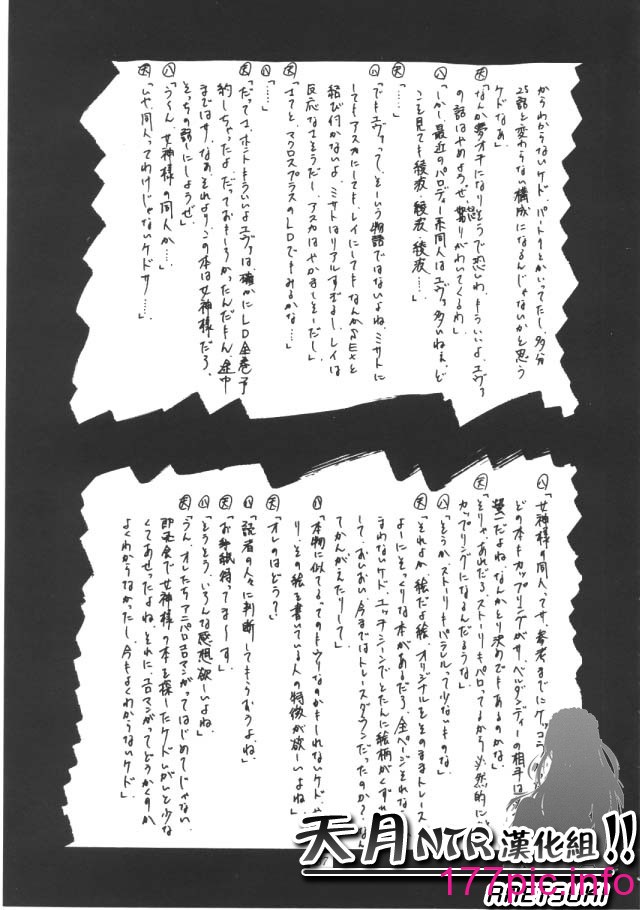 からわからないケド、パート9とかいってたし、多分
25話と変わらない構成になるんじゃないかと思う
ケドなぁ」
天「なんか夢オチになりそうで恐いわ、もういいよ、エヴァ
の話はやめようぜ、怒りがわいてくるわ」
八「しかし最近のパロディー系同人はエヴァ多いねぇ、ど
こを見ても綾波、綾波、綾波…」
天「……」
八「でもエヴァって、そーいう物語ではないよね、ミサトに
してもアスカにしてもレイにしてもなんかSEXと
結び付かないよ、ミサトはリアルすぎるし、レイは
反応なさそうだし、アスカはやかましそーだし」
天「さてと、マクロスプラスのLDでもみるかな…」
八「……」
天「だってさ、ホントもういいよエヴァは、確かにLD全巻予
約しちゃったよ、だっておもしろかったんだもん、途中
まではサ、なあ、それよりこの本は女神様だろ、
そっちの話にしようぜ」
八「うーん、女神様の同人か…」
天「いや同人ってわけじゃないケドサ……」
八「女神様の同人ってサ、参考までにケッコー
どの本もカップリングがサ、ベルダンディーの相手は
螢一だよね、なんかとり決めでもあるのかな」
天「そりゃあれだろ、ストーリーもパロってるから必然的に
カップリングになるんだろうな」
八「そうかストーリーパラレルって少ないものな」
天「それよか絵だよ絵、オリジナルをそのままトレース
よーにそっくりな本があるだろ、全ページそれな
まわないケド、エッチシーンでとたんに絵柄がくず
して、おいおい、今まではトレースダウンだったのか?
てかんがえたりして」
八「本物に似てるってのもウリなのかもしれないケド
り、その絵を書いている人の特徴が欲しいよね」
天「オレのはどう?」
八「読者の人々に判断してもらおうよね」
天「お手紙待ってまーす」
八「そうそう、いろんな感想欲しいよね」
天「うん、オレたちアニパロエロマンガってはじめてじゃない、
即売会で女神様の本を探したケドいがいと少な
くてあせったよね、それにエロマンガってどうかくのか
よくわからなかったし、今もよくわからないケド」
天月NTR漢化組!!
177pic.info